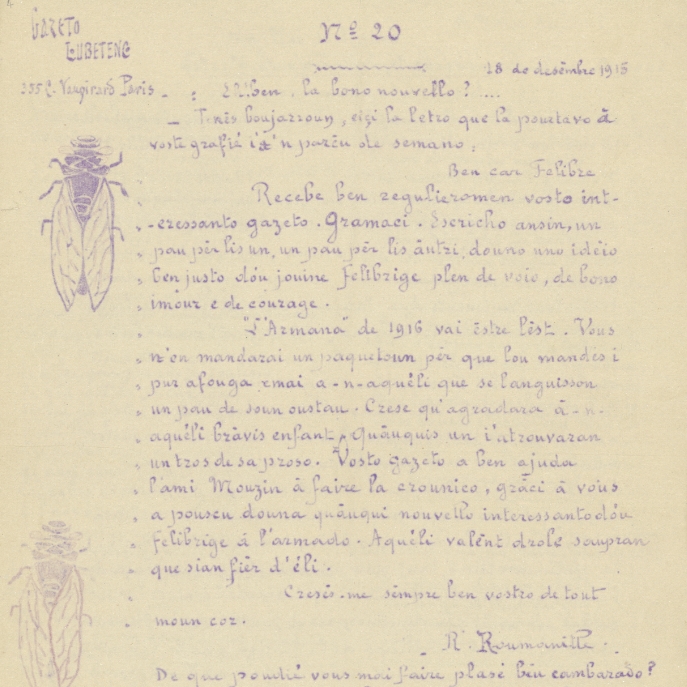 GAZETO
LUBETENC
Nº 20
18 de desèmbre 1915
355 C. Vaugirard Paris
- Eh! ben, la bono nouvello? ....
- Tenès boujarroun, eici la letro que la pourtavo à
voste grafié i'a'n parèu de semano:
Ben car Felibre
Recebe ben regulieromen vosto int-
-eressanto gazeto. Gramaci. Escricho ansin, un
pau pèr lis un, un pau pèr lis àutri, douno uno idèio
ben justo dóu jouine Felibrige plen de voio, de bono
imour e de courage.
"L'Armana" de 1916 vai èstre lèst. Vous
n'en mandarai un paquetoun pèr que lou mandés i
pur afouga emai a-n-aquéli que se languisson
un pau de soun oustau. Crese qu'agradara à-n-
aquéli bràvis enfant, quàuquis un i'atrouvaran
un tros de sa proso. Vosto gazeto a ben ajuda
l'ami Mouzin à faire la crounico, gràci à vous
a pouscu douna quàuqui nouvello interessanto dóu
Felibrige à l'armado. Aquéli valènt drole saupran
que sian fièr d'éli.
Cresès-me sèmpre ben vostro de tout
moun cor.
R. Roumanille.
De que poudié vous mai faire plasé bèu cambarado?